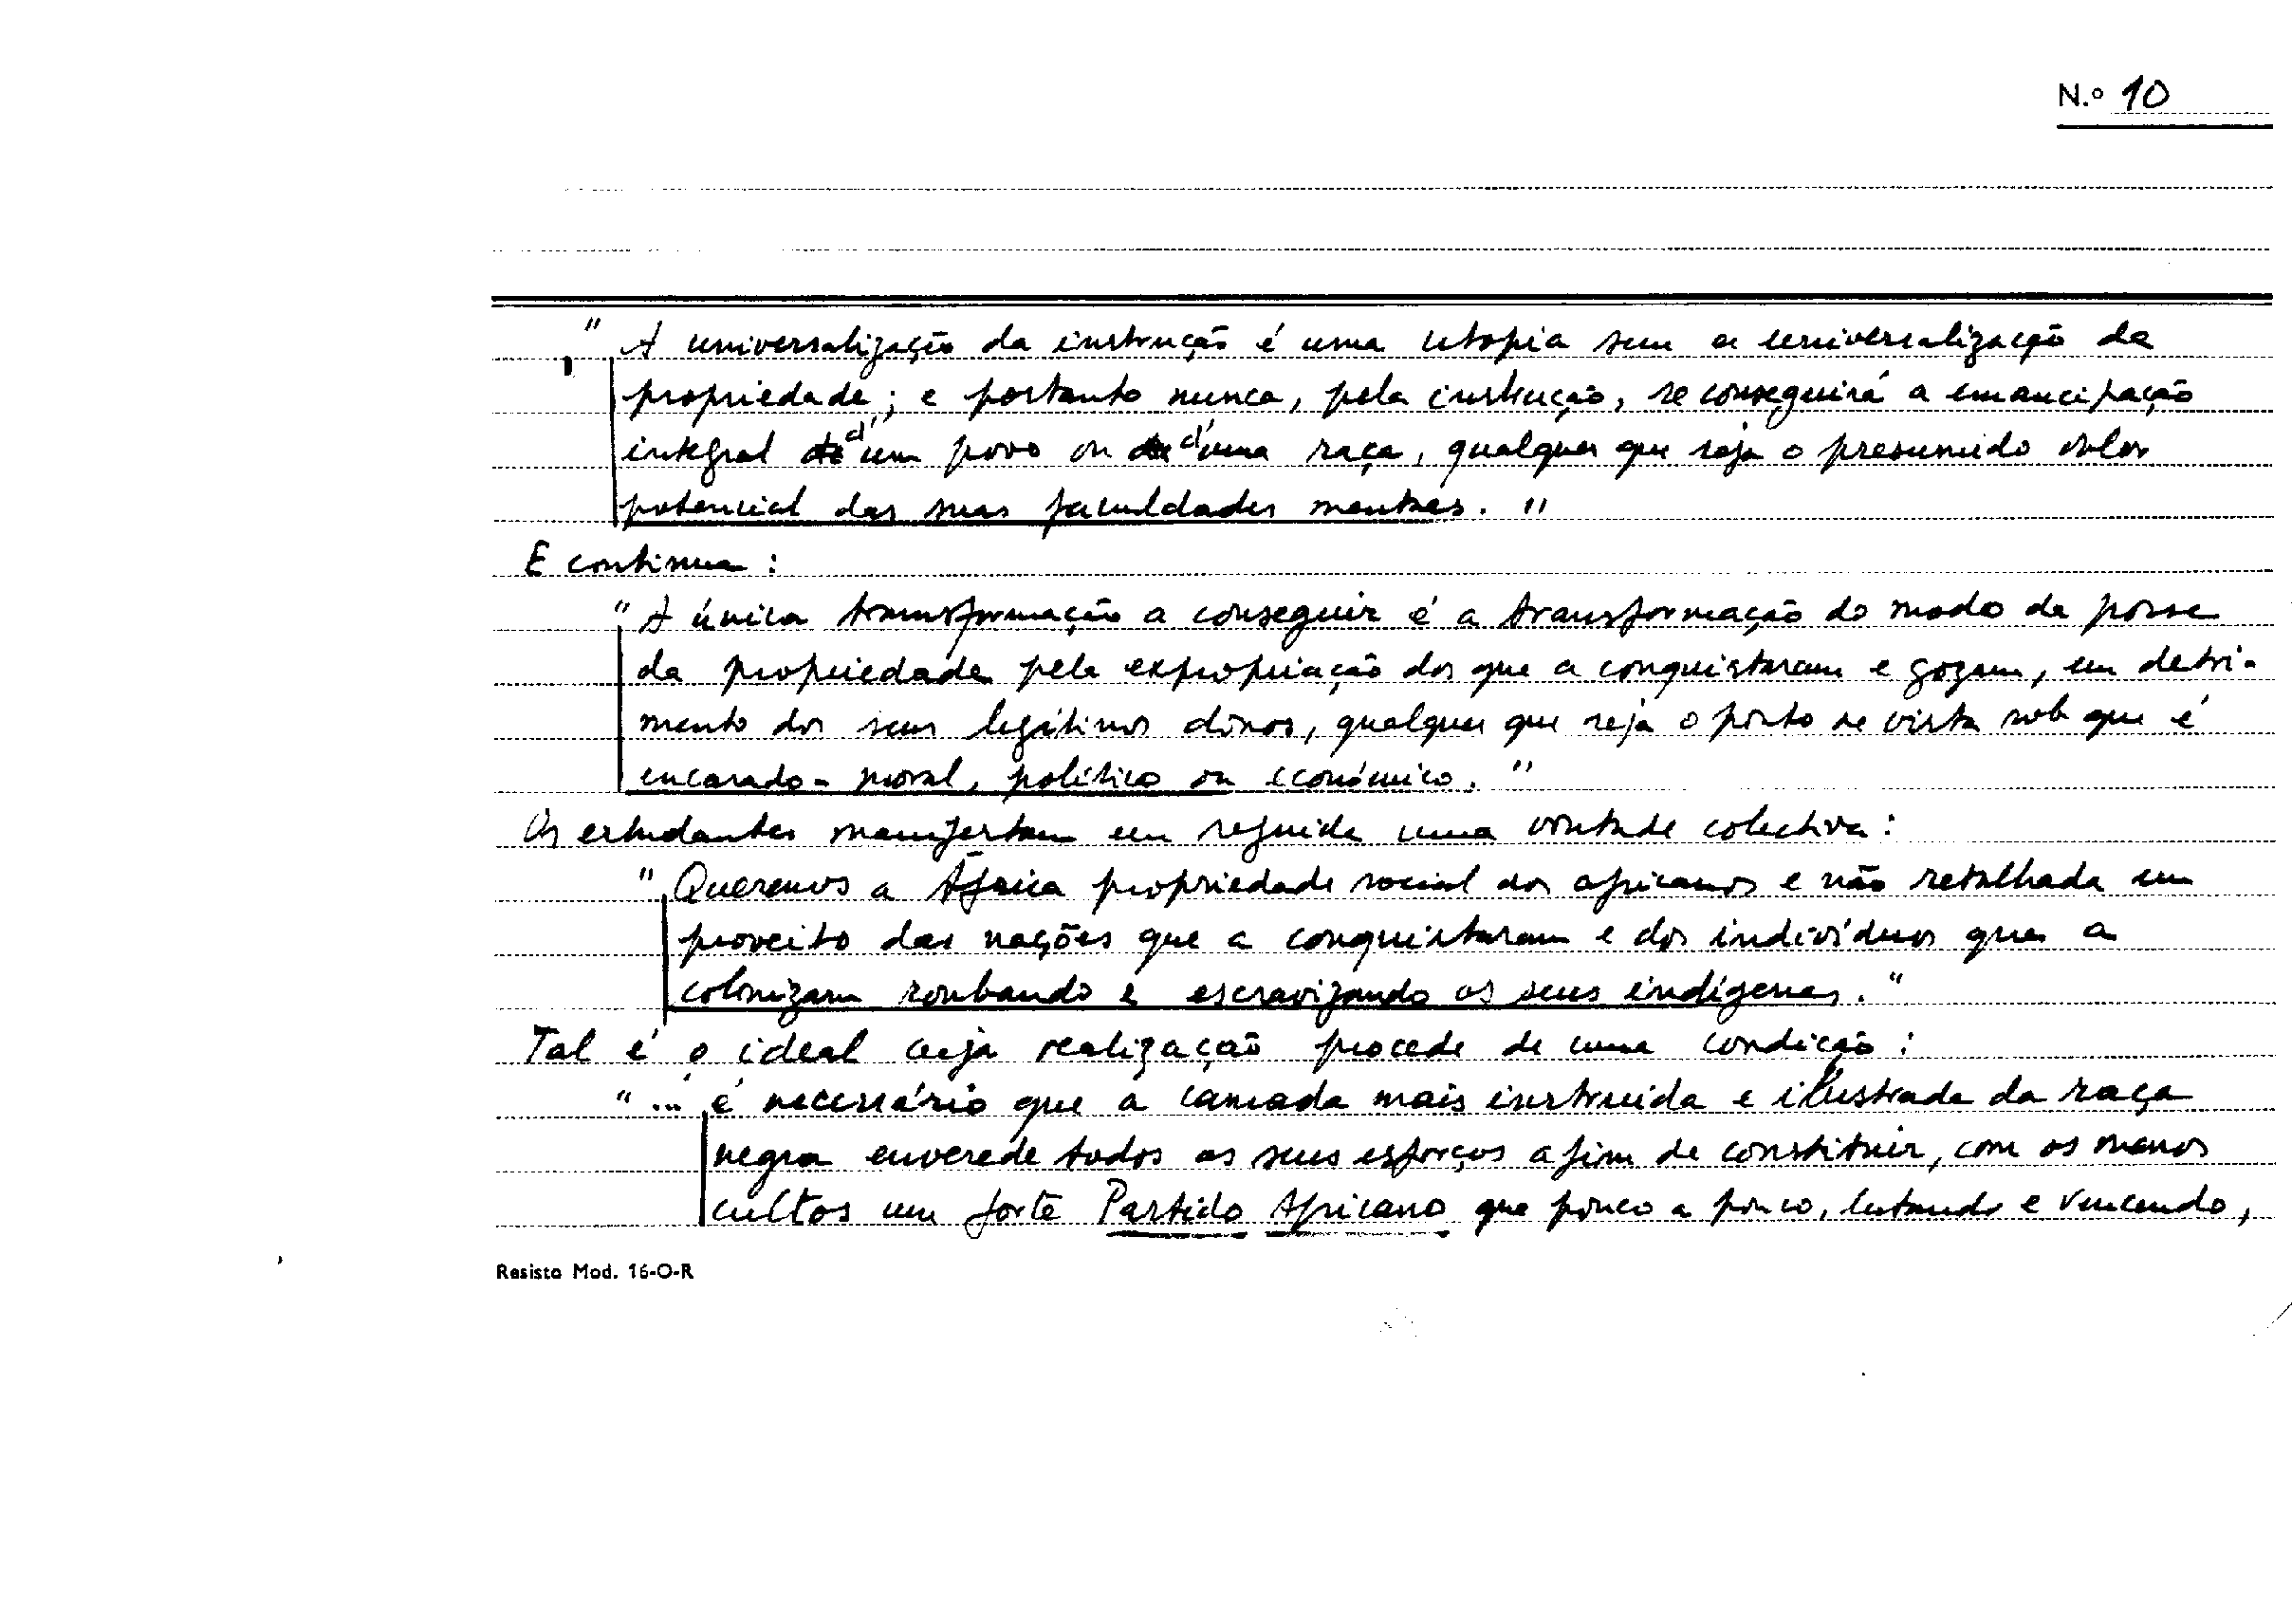 N.º 10
" A universalização da instrução é uma utopia sem a universalização da
propriedade; e portanto nunca, pela instrução, se conseguirá a emancipação
integral d'um povo ou d'uma raça, qualquer que seja o presumido valor
potencial das suas faculdades mentaes. "
E continua :
" A única transformação a conseguir é a transformação do modo de posse
da propriedade pela expropriação dos que a conquistaram e gozam, em detri-
mento dos seus legítimos donos, qualquer que seja o ponto de vista sob que é
encarado - moral, político ou económico. "
Os estudantes manifestam em seguida uma vontade colectiva :
" Queremos a África propriedade social dos africanos e não retalhada em
proveito das nações que a conquistaram e dos indivíduos que a
colonizam roubando e escravizando os seus indígenas. "
Tal é o ideal cuja realização procede de uma condição :
" ... é necessário que a camada mais instruida e ilustrada da raça
negra enverede todos os seus esforços afim de constituir, com os menos
cultos um forte Partido Africano que pouco a pouco, lutando e vencendo,
Resisto Mod. 16-O-R